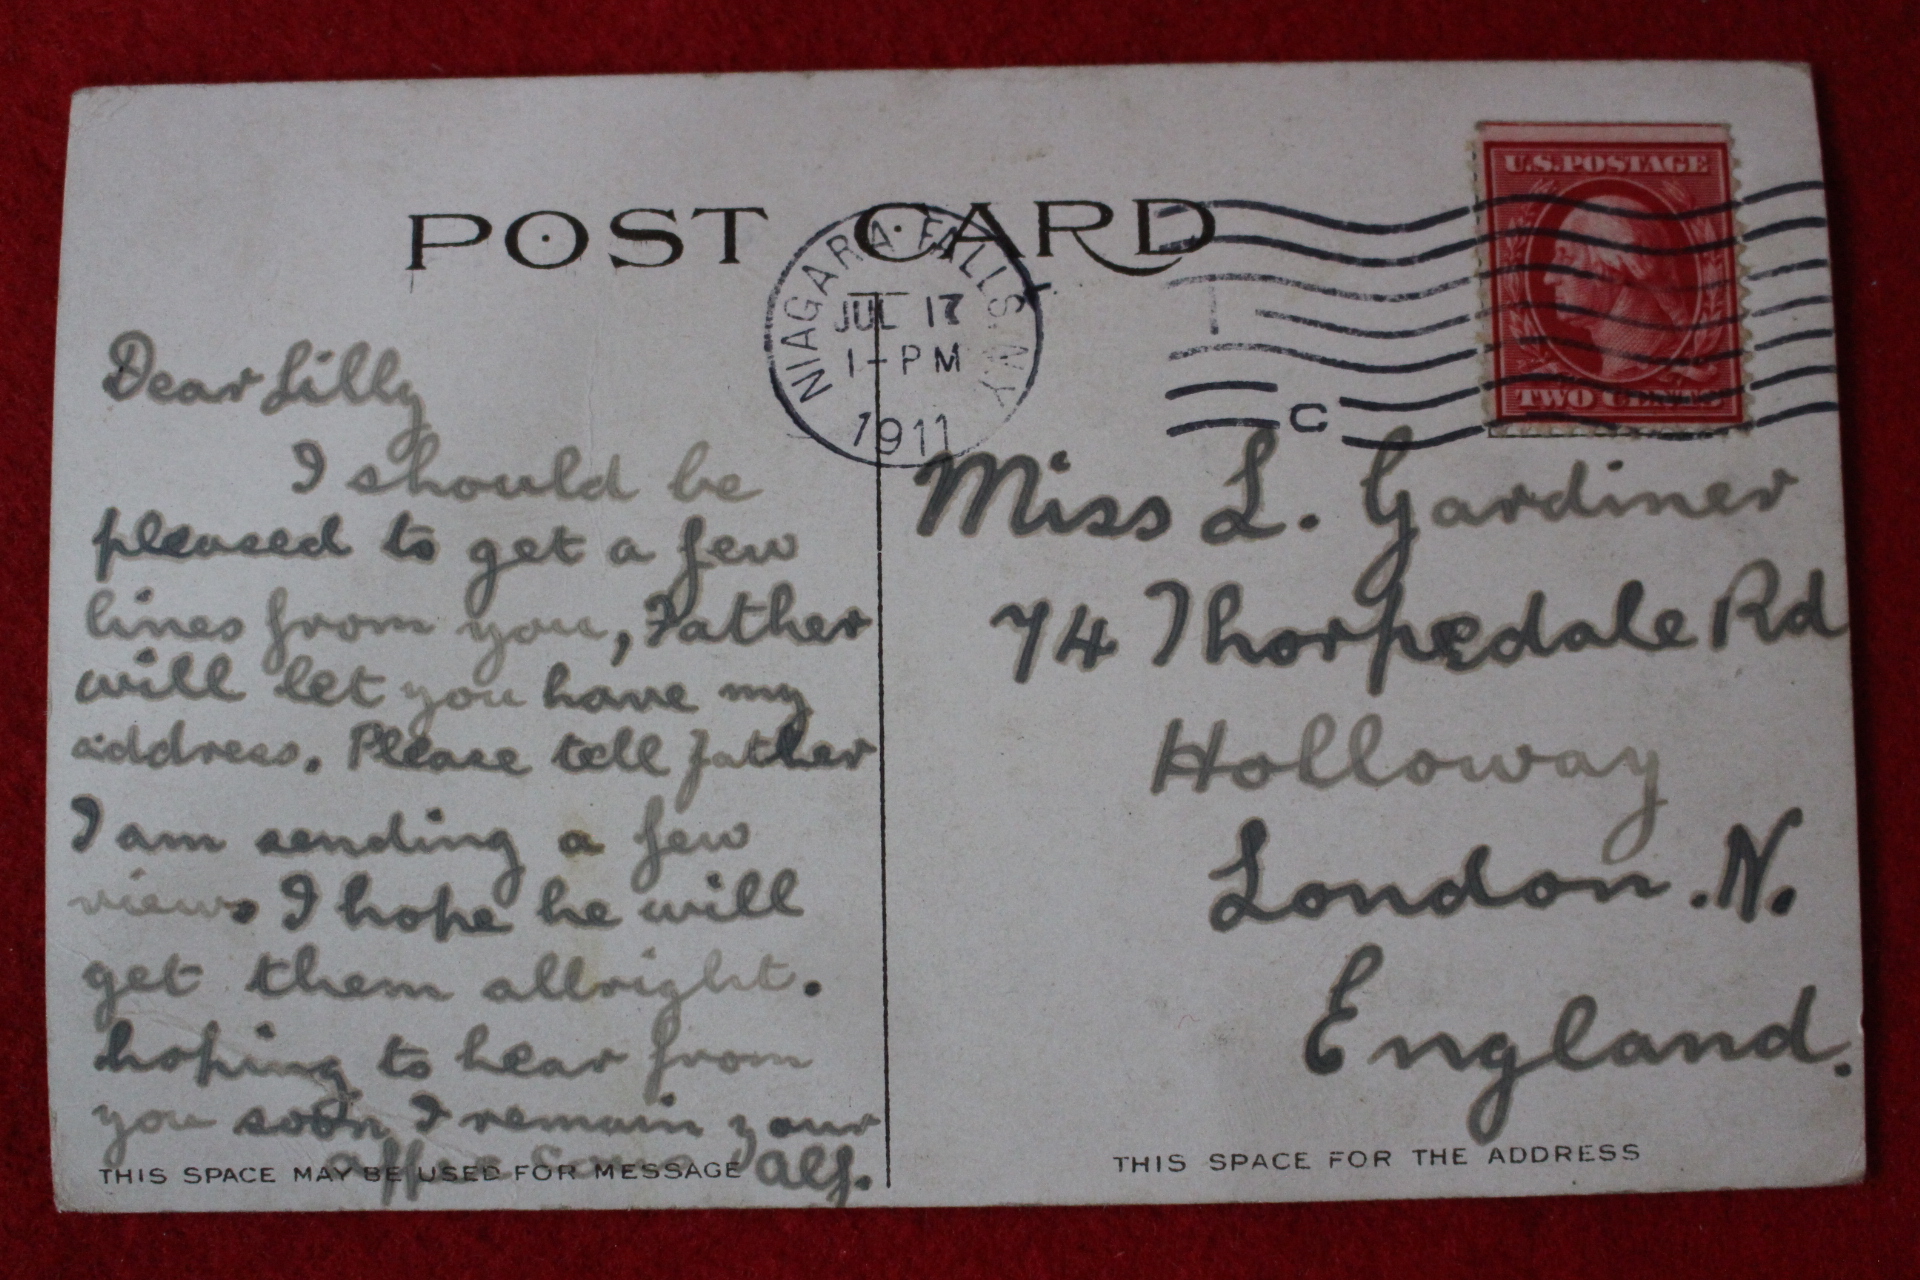 POST CARD
U.S. POSTAGE
TWO CENTS
NIAGARA FALLS. N.Y.
JUL 17
1-PM
1911
C
Dear Lilly
I should be
pleased to get a few
lines from you, Father
will let you have my
address. Please tell Father
I am sending a few
views I hope he will
get them allright.
hoping to hear from
you soon I remain your
Alf.
THIS SPACE MAY BE USED FOR MESSAGE
Miss L. Gardiner
74 Thorpedale Rd
Holloway
London. N.
England.
THIS SPACE FOR THE ADDRESS